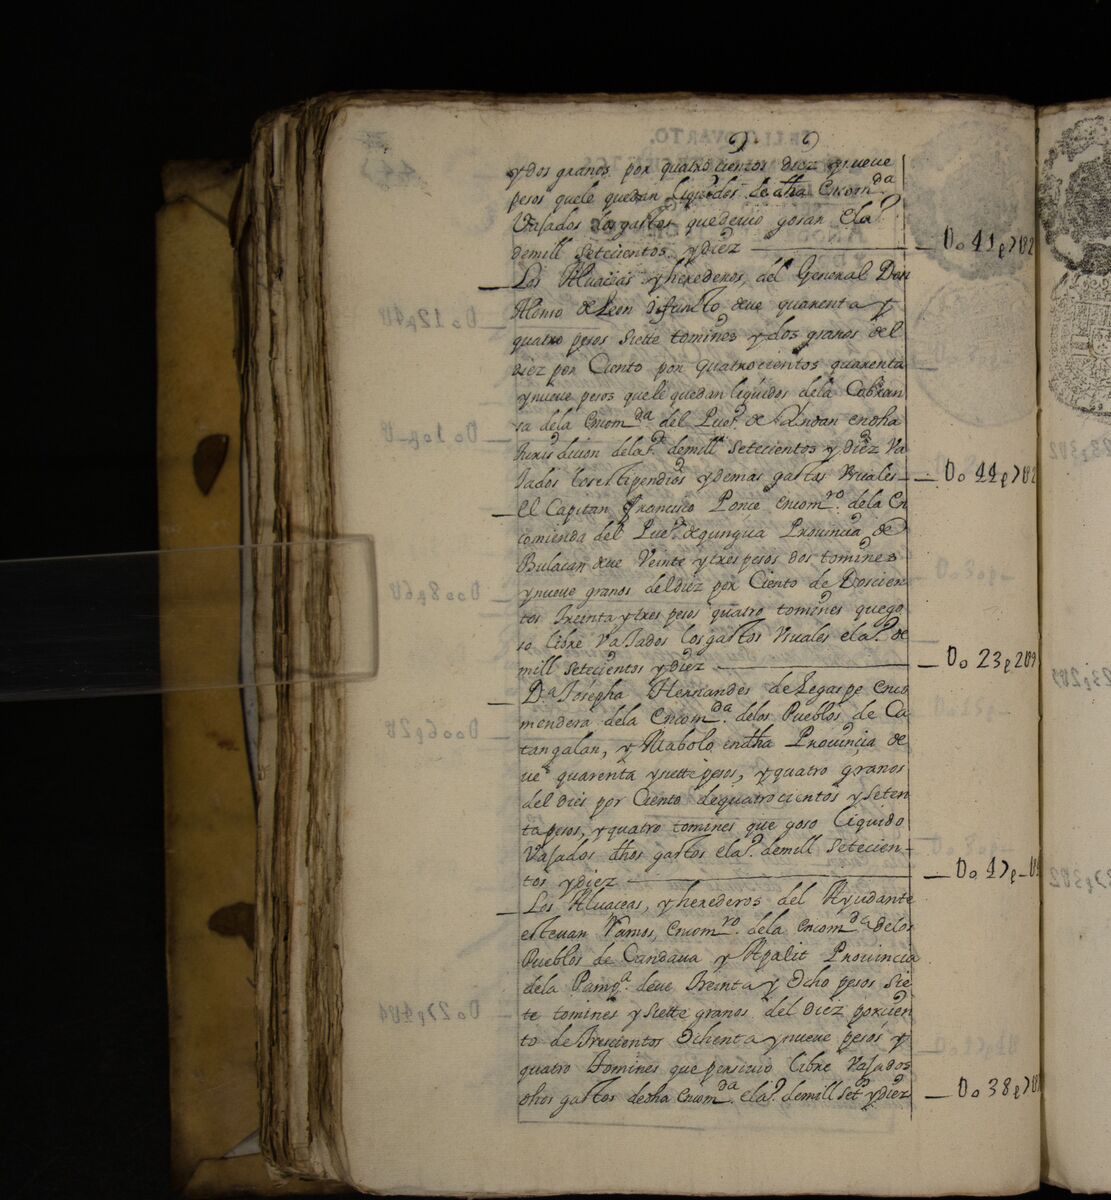 y dos granos por quatrocientos diez y nueve
pesos que le quedan liquidos de dha Encom.da
Vajados los gastos que devio gosar el a.o
de mill Setecientos y diez — D o 41 p 7 U 2
Los Albaceas y herederos del General Don
Alonso de Leon difunto deve quarenta y
quatro pesos siette tomines y dos granos del
diez por Ciento por quatrocientos quarenta
y nueve pesos que le quedan liquidos de la Cobran
sa dela Encom.da del Pueo. de en dha
Jurisdicion del a.o de mill Setecientos y diez Va
Jados los estipendios y demas gastos Vsuales — D o 44 p 7 U 2
El Capitan Francisco Ponce Encom.ro dela En
comienda del Pueo. de quingua Provincia de
Bulacan deve Veinte y tres pesos dos tomines
y nueve granos del diez por Ciento de Doscien
tos treinta y tres pesos quatro tomines que go
so libre Vajados los gastos Vsuales el a.o de
mill setecientos y diez — D o 23 p 2 U 9
D.a Josepha Hernandes de Legaspe Enco
mendera dela Encom.da delos Pueblos de Ca
tangalan, y Mabolo, en dha Provincia de
ve quarenta y siette pesos, y quatro granos
del dies por Ciento de quatrocientos y seten
ta pesos, y quatro tomines que goso liquido
Vajados dhos gastos el a.o de mill setecien
tos y diez — D o 47 p
Los Albaceas, y herederos del Ayudante
estevan Ramos, Encom.ro dela Encom.da delos
Pueblos de Candava y Apalit Provincia
dela Pamp.a deve treinta y Ocho pesos sie
te tomines y siette granos del diez por cien
to de trescientos Ochenta y nueve pesos y
quatro tomines que persivio libre Vajados
dhos gastos de dha Encom.da el a.o de mill set.s y diez — D o 38 p 7 U